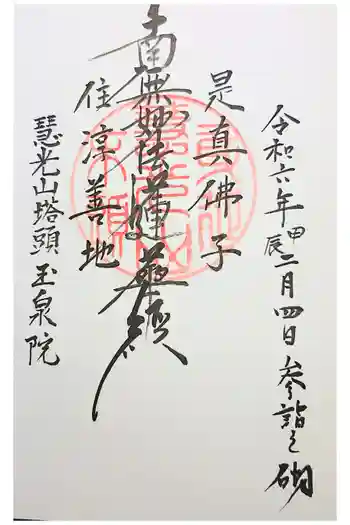 令和六年甲辰二月四日参詣之砌
是真佛子
南無妙法蓮華経
住淳善地
慧光山塔頭玉泉院